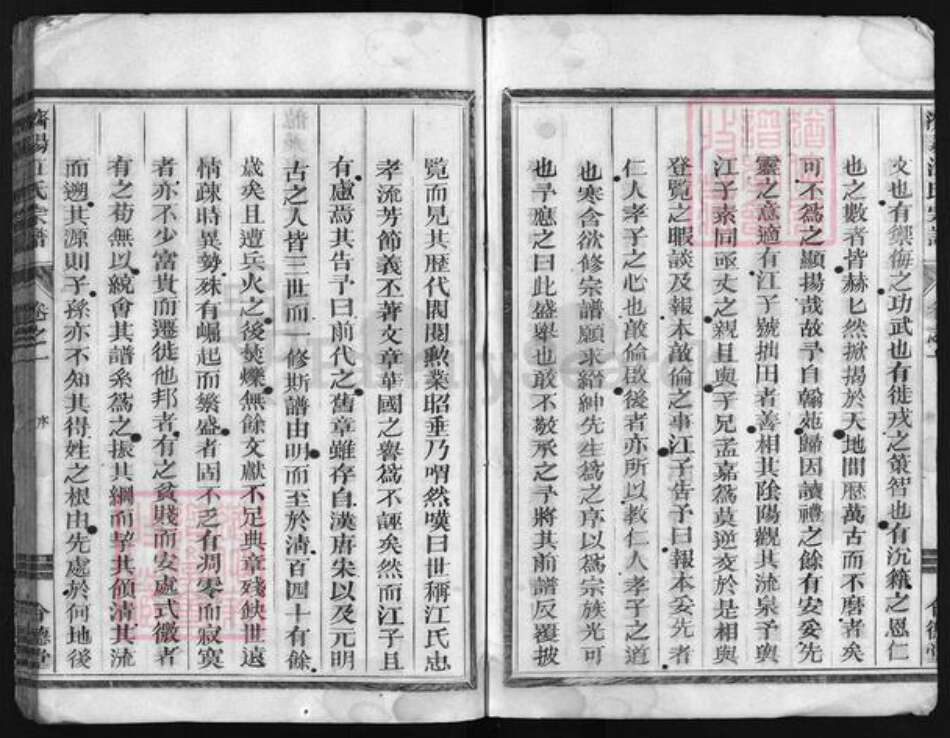 文也有禦侮之功武也有徙戎之策智也有沉籍之恩仁
也之數者皆赫匕然掀揭於天地間歷萬古而不磨者矣
可不為之顯揚哉故予自翰苑歸因讀禮之餘有安妥先
靈之意適有江子號拙田者善相其陰陽觀其流泉予與
江子素同函丈之親且與予兄孟嘉為莫逆交於是相與
登覽之暇談及報本敵倫之事江子告予曰報本妥先者
仁人孝子之心也敵倫啟後者亦所以教仁人孝子之道
也寒舍欲修宗譜願求縉紳先生為之序以為宗族光可
也予應之曰此盛舉也敢不敬承之予將其前譜反覆披
覽而見其歷代閥閱勳業昭垂乃喟然嘆曰世稱江氏忠
孝流芳節義丕著文章華國之譽為不誣矣然而江子且
有慮焉其告予曰前代之舊章雖存自漢唐朱以及元明
古之人皆三世而一修斯譜由明而至於清百四十有餘
歲矣且遭兵火之後焚爍無餘文獻不足典章殘缺世遠
情疎時異勢殊有崛起而繁盛者固不乏有凋零而寂寞
者亦不少富貴而遷徙他邦者有之貧賤而安處式微者
有之苟無以統會其譜系為之振其綱而挈其領清其流
而遡其源則子孫亦不知其得姓之根由先處於何地後
濟陽江氏宗譜
卷之一
水
合德堂